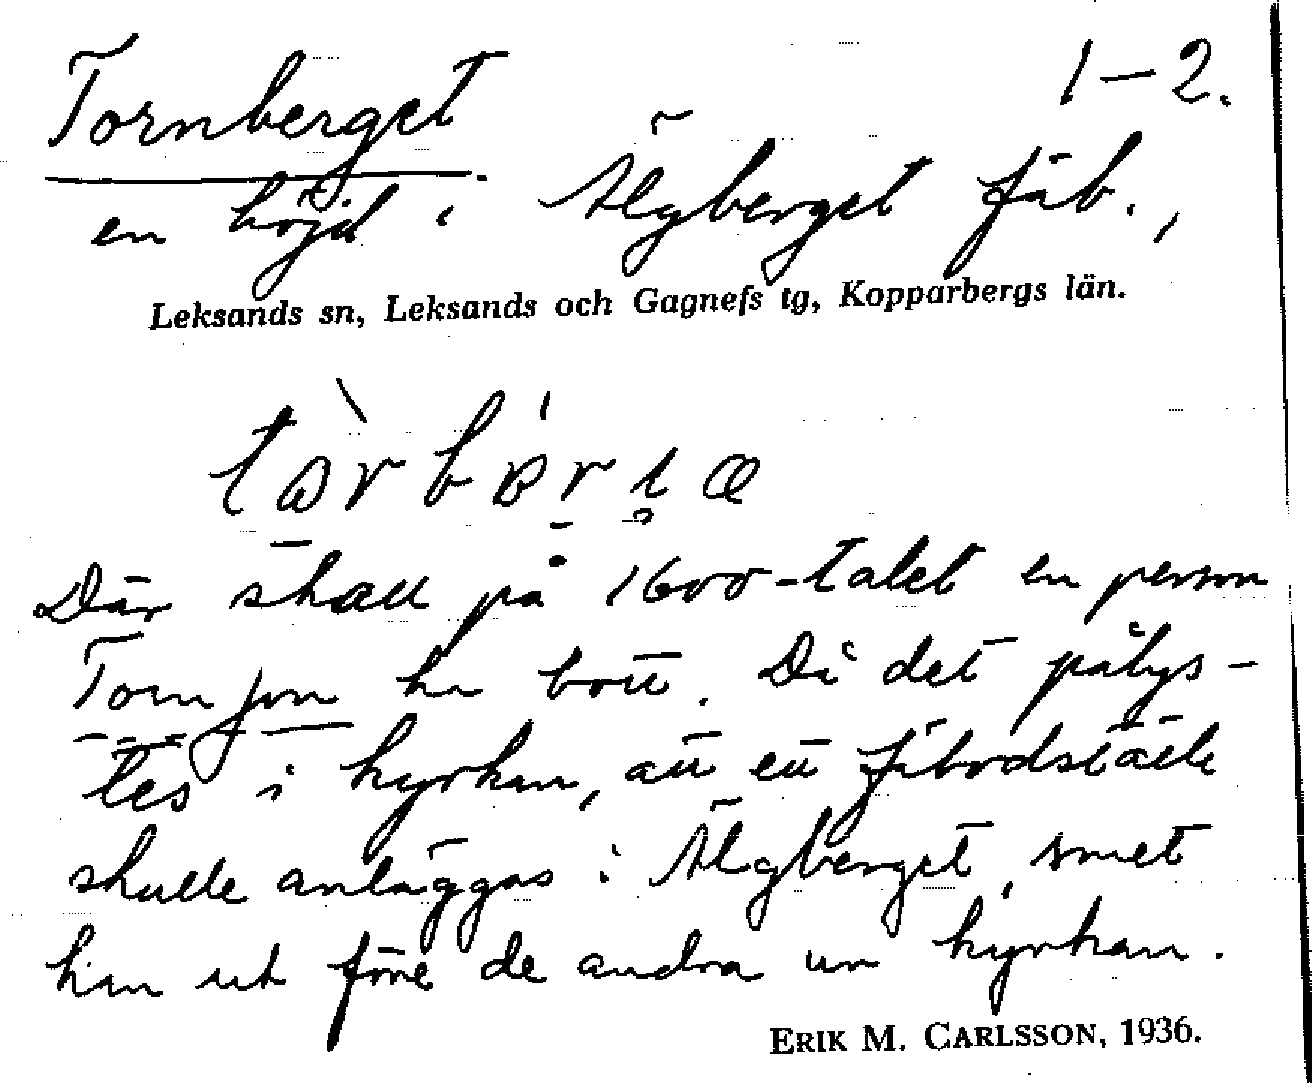 Tornberget 1-2.
en höjd i Älgberget fäb.,
Leksands sn, Leksands och Gagnefs tg, Kopparbergs län.
Där skall på 1600-talet en person
Tom Jon ha bott. Då det pålys-
tes i kyrkan, att ett fäbodställe
skulle anläggas i Älgberget, smet
han ut före de andra ur kyrkan.
ERIK M. CARLSSON, 1936.